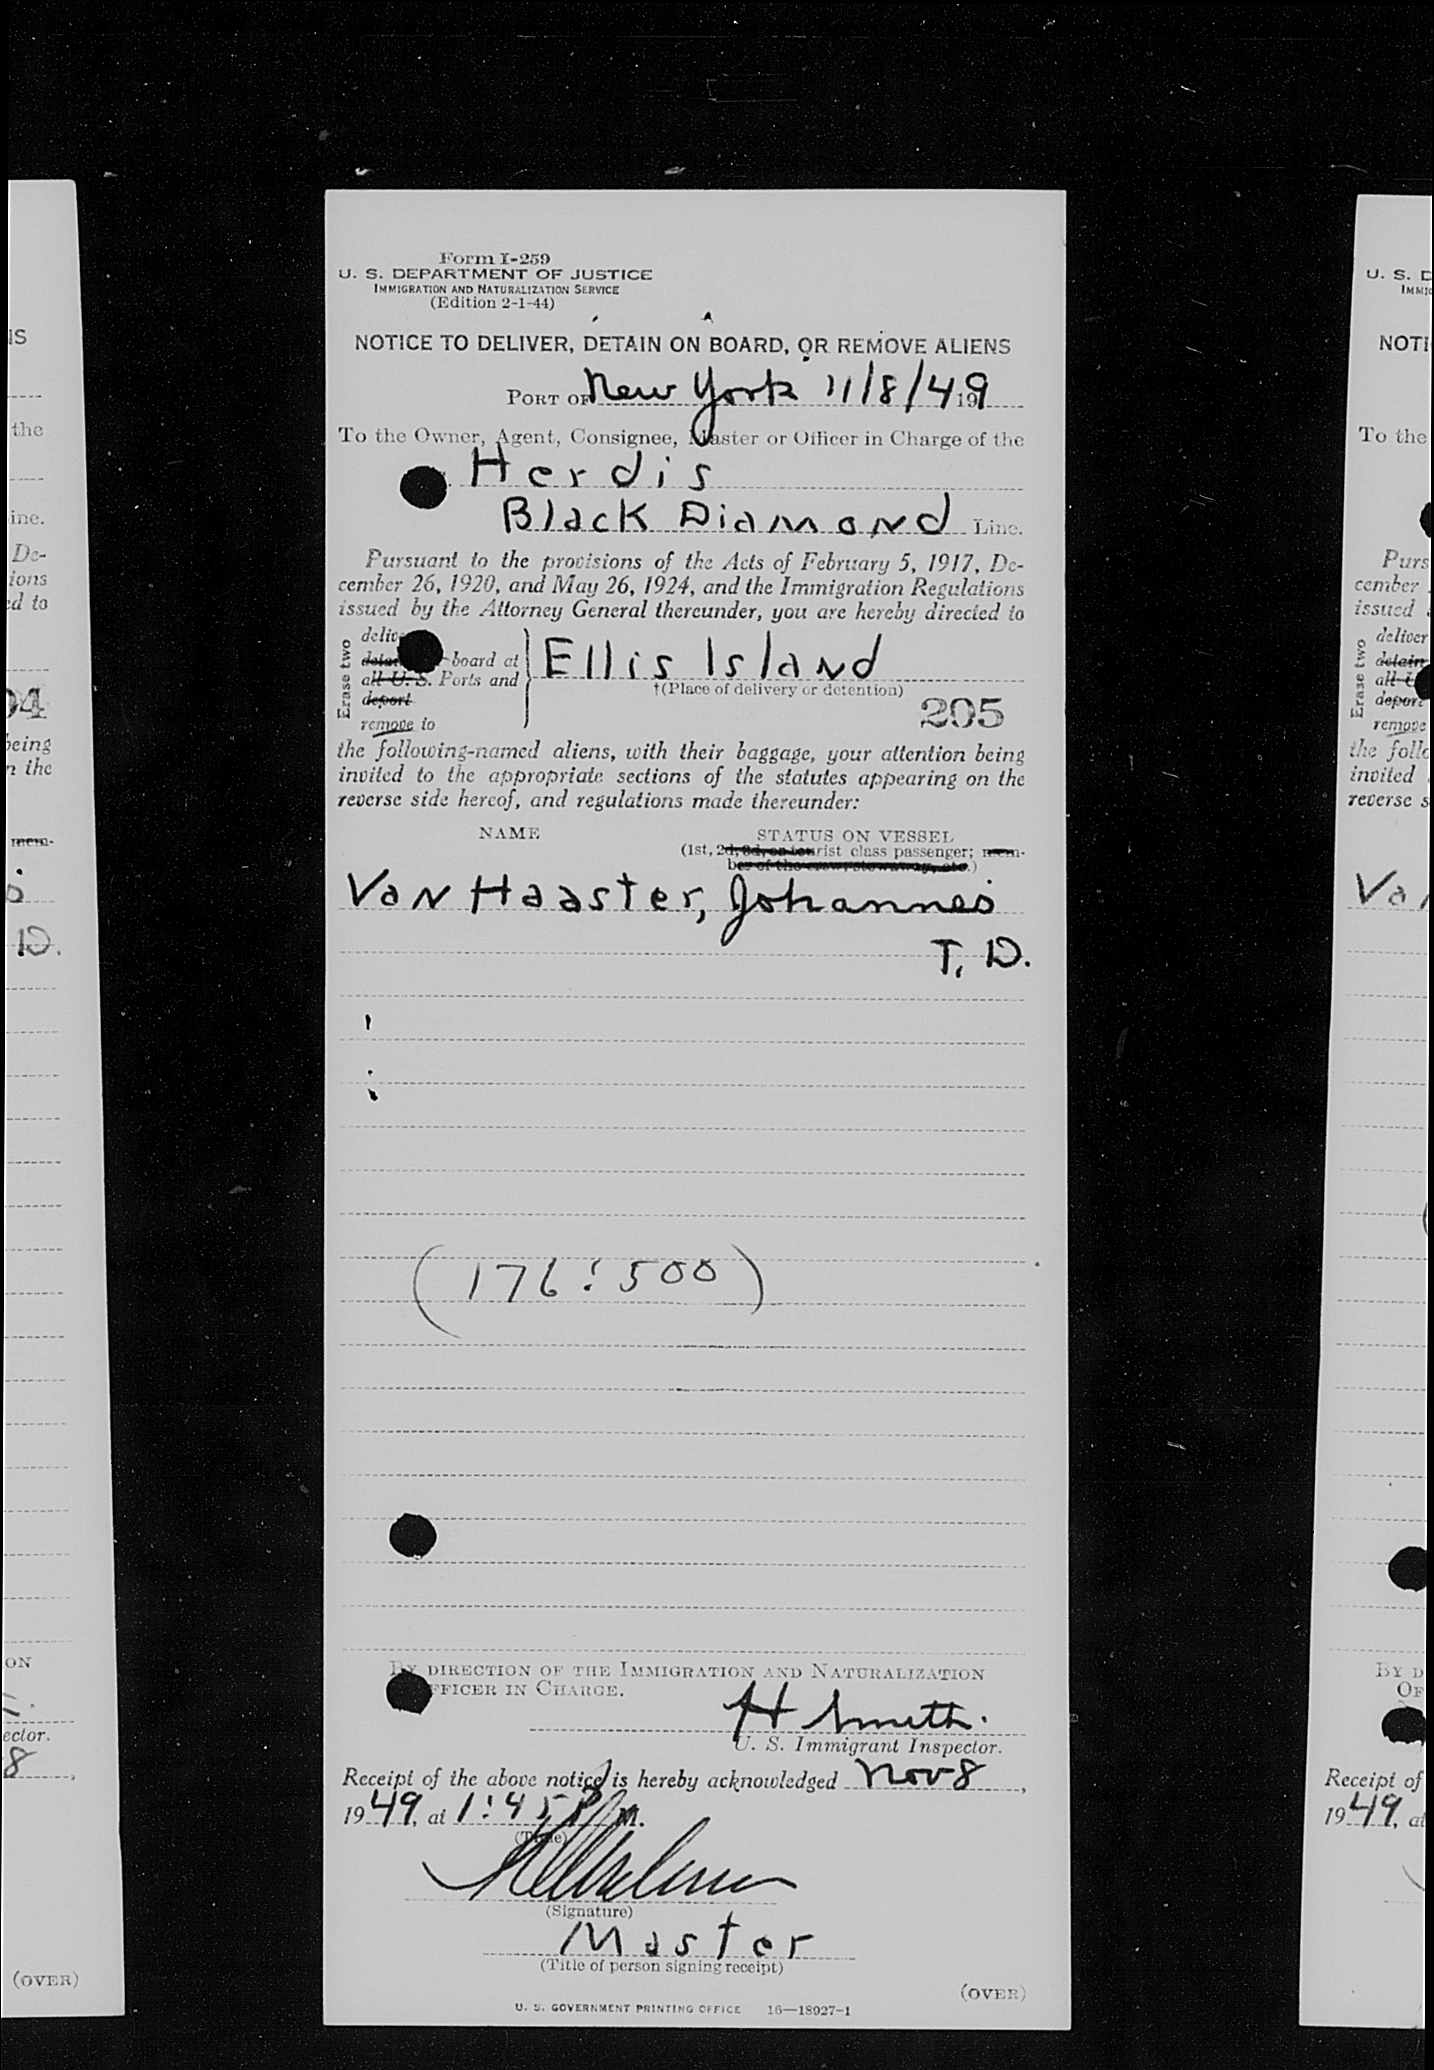 Form I-259
U. S. DEPARTMENT OF JUSTICE
IMMIGRATION AND NATURALIZATION SERVICE
(Edition 2-1-44)
NOTICE TO DELIVER, DETAIN ON BOARD, OR REMOVE ALIENS
PORT OF New York 11/8/49 19
To the Owner, Agent, Consignee, Master or Officer in Charge of the
Herdis
Black Diamond Line.
Pursuant to the provisions of the Acts of February 5, 1917, De-
cember 26, 1920, and May 26, 1924, and the Immigration Regulations
issued by the Attorney General thereunder, you are hereby directed to
Erase two
board at
all U. S. Ports and
deport
remove to
Ellis Island
†(Place of delivery or detention)
205
the following-named aliens, with their baggage, your attention being
invited to the appropriate sections of the statutes appearing on the
reverse side hereof, and regulations made thereunder:
NAME STATUS ON VESSEL
(1st, 2d, 3d, or tourist class passenger; mem-
ber of the crew, stowaway, etc.)
Van Haaster, Johannes
T. D.
(176:500)
BY DIRECTION OF THE IMMIGRATION AND NATURALIZATION
OFFICER IN CHARGE.
H Smith.
U. S. Immigrant Inspector.
Receipt of the above notice is hereby acknowledged Nov 8,
1949, at 1:45 P M.
(Time)
(Signature)
Master
(Title of person signing receipt)
(OVER)
U. S. GOVERNMENT PRINTING OFFICE 16—18927-1
IS
the
ine.
De-
ions
ed to
04
being
n the
mem-
D.
ON
ector.
8
(OVER)
U. S. D
IMMI
NOTI
To the
Purs
cember
issued
Erase two
deliver
detain
all U
deport
remove
the follo
invited
reverse s
Van
BY D
OF
Receipt of
1949, at